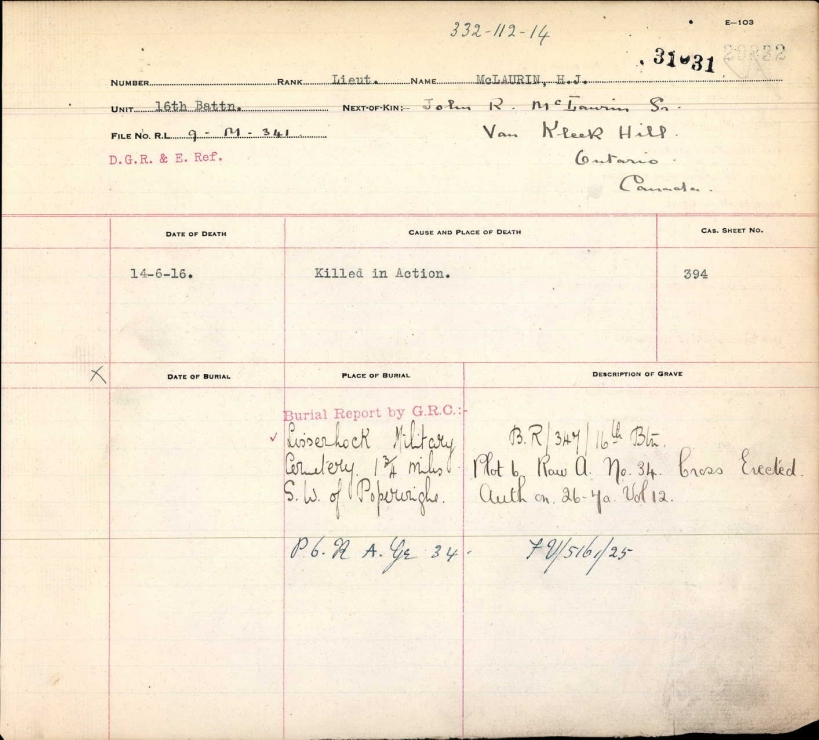 332-112-14
E-103
31 31
20232
NUMBER RANK Lieut. NAME McLAURIN, H.J.
UNIT 16th Battn. NEXT-OF-KIN:- John R. McLaurin Sr.
FILE NO. R.L. 9 - M - 341 Van Kleek Hill.
D.G.R. & E. Ref. Ontario.
Canada.
DATE OF DEATH CAUSE AND PLACE OF DEATH CAS. SHEET NO.
14-6-16. Killed in Action. 394
X DATE OF BURIAL PLACE OF BURIAL DESCRIPTION OF GRAVE
Burial Report by G.R.C.:-
✓ Lisserhock Military B.R/347/16th Btn.
Cemetery. 1 3/4 miles Plot 6 Row A. No. 34. Cross Erected.
S.W. of Poperinghe. Auth on. 26-7a. Vol 12.
P. 6. R A. Ge 34. 7 V/5161/25